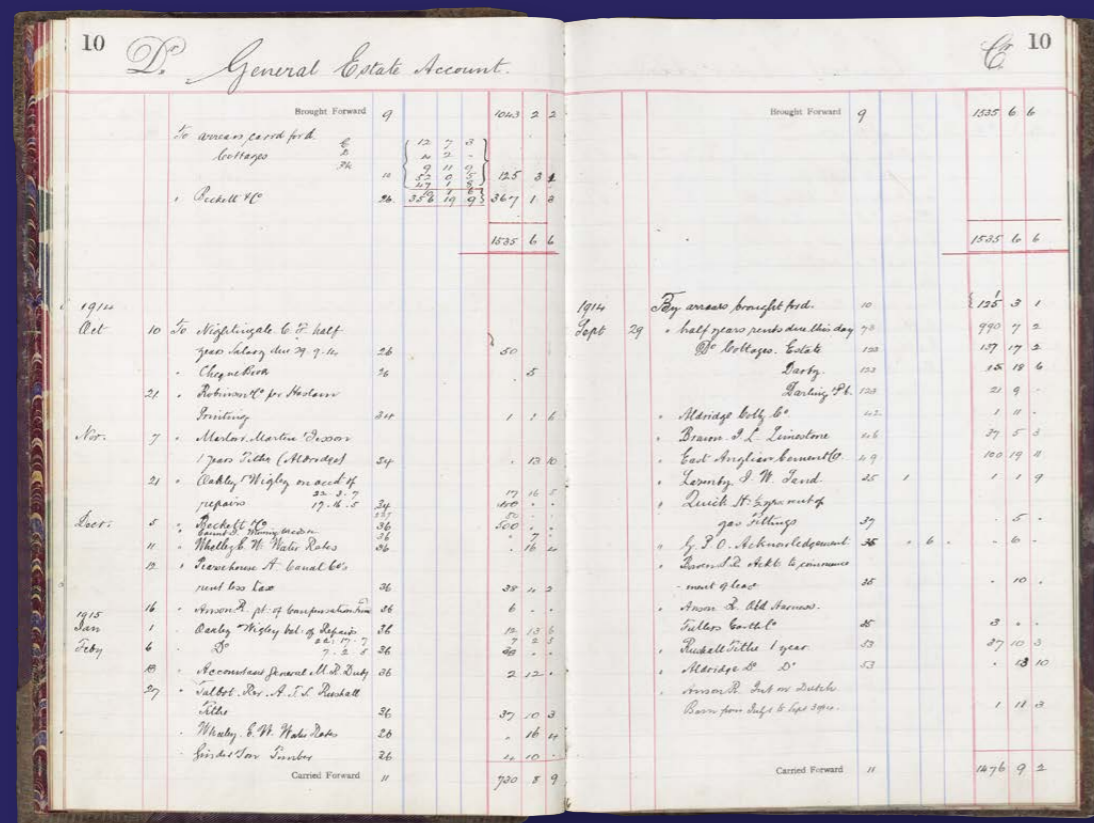 10
Dr. General Estate Account.
Brought Forward 9 1043 2 2
To arrears card ford
Cottages
12 7 3
11 125 3 1
" Beckett & Co 26 356 19 9 367 1 3
1535 6 6
1914
Oct 10 To Nightingale C. F. half
years Salary due 29.9.14 26 50
" Cheque Book 26 5
21 " Robinson & Co for Haslam
34 1 1 6
Nov. 7 "
1 years Tithe (Aldridge) 34 . 13 10
21 " Oakley & Wigley on acct of
22.3.7 17 16 5
repairs 17.16.5 34
Decr. 5 " Beckett & Co 36 500 . .
36 . 7 .
11 " Whalley E. W. Water Rates 36 . 16 4
12 " Pearehouse A Canal Co's
rent less tax 36 38 4 2
16 " Anson R. pt. of Compensation from 36 6 . .
1915
Jan 1 Oakley & Wigley bal: of Repairs 36 12 13 6
22.17.7 7 2 5
Feby 6 " Do 7.2.5 36
" Accountant General M. R. Duty 36 2 12 .
27 " Talbot. Rev. A. T. S. Rushall
Tithe 36 37 10 3
" Whalley. E. W. Water Rates 26 . 16 4
Timber 26 4 10 .
Carried Forward 11 730 8 9
Cr. 10
Brought Forward 9 1535 6 6
1535 6 6
1914 By arrears brought ford. 10 125 3 1
Sept 29 " half years rents due this day 990 7 2
Do Cottages. Estate 122 137 17 2
Darby. 123 15 18 6
Darling Pt. 123 21 9 -
" Aldridge Colly Co. 42 1 11 .
" J. L. Limestone 46 37 5 3
" East Anglian Cement Co. 49 100 19 11
" J. W. Sand 25 1 1 1 9
" Quick H. ½ yr rent of
gas Fittings 37 . 5 .
" G. P. O. Acknowledgement 35 . 6 . . 6 .
" Ackt to commence
-ment of lease 35 . 10 .
" Anson R. Old Harness.
Fullers Earth Co 35 3 . .
" Rushall Tithe 1 year 53 37 10 3
" Aldridge Do Do 53 . 13 10
" Anson R. Int on Dutch
Barn from July 1 to Sept 1 18 3
Carried Forward 11 1476 9 2